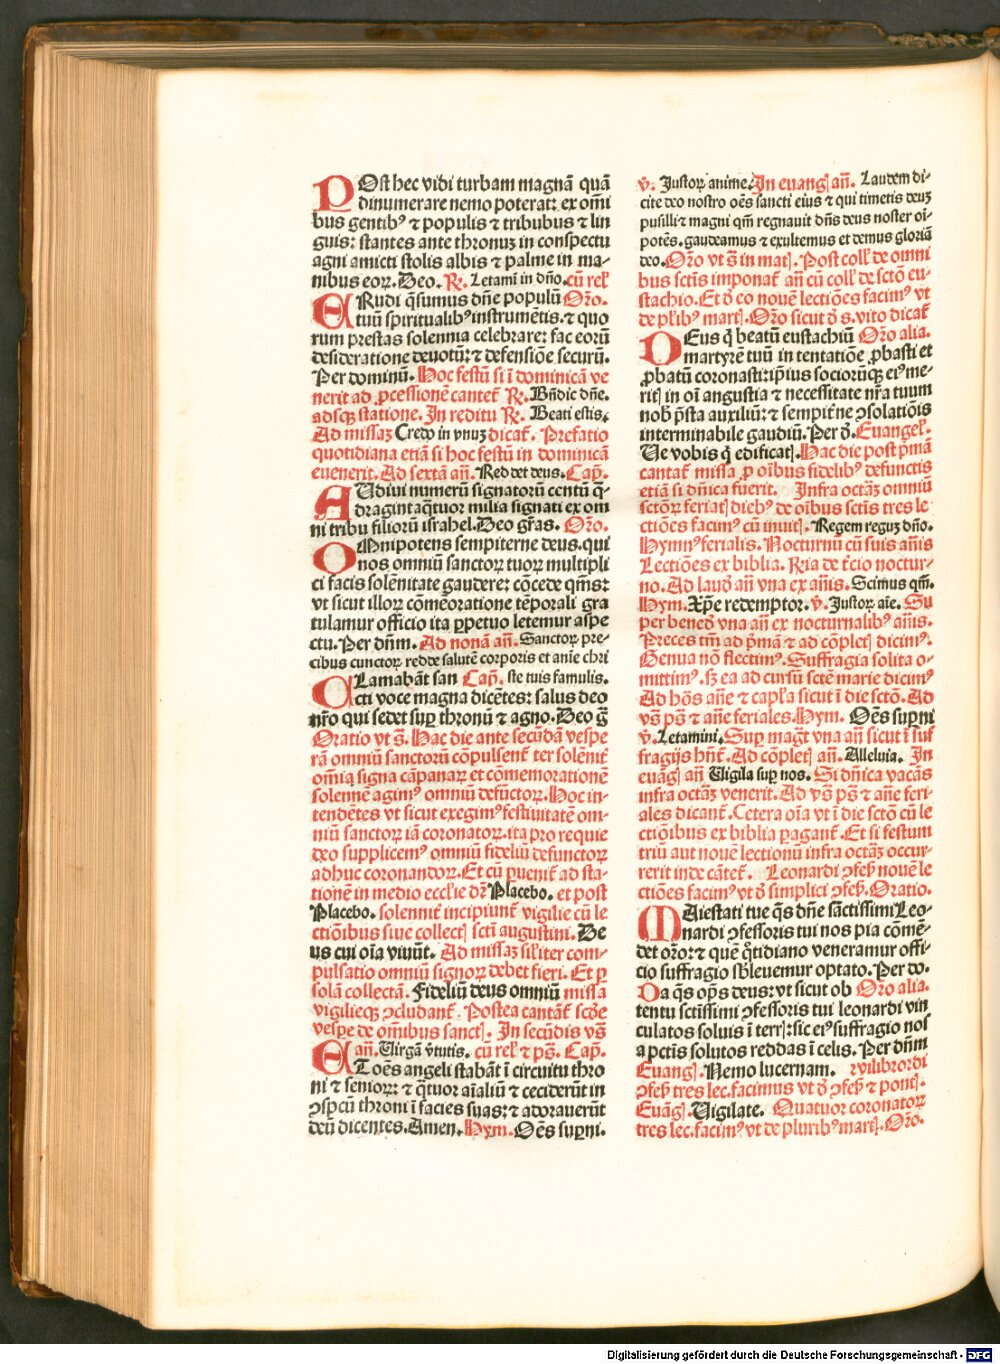 POst hec vidi turbam magnā quā
dinumerare nemo poterat: ex om̄i
bus gentibꝰ ⁊ populis ⁊ tribubus ⁊ lin
guis: stantes ante thronuꝫ in conspectu
agni amicti stolis albis ⁊ palme in ma-
nibus eoꝝ. Deo. ℞. Letami in dn̄o. cū rel̄
ERudi q̄sumus dn̄e populū Or̄o.
tuū spiritualibꝰ instrumētis. ⁊ quo
rum prestas solennia celebrare: fac eorū
desideratione deuotū: ⁊ defensiōe securū.
Per dominū. Hoc festū si ī dominicā ve
nerit ad ꝓcessionē cantet̄ ℞. Bn̄dic dn̄e.
adsqꝫ statione. In reditu ℞. Beati estis.
Ad missaꝫ Credo in vnuꝫ dicat̄. Prefatio
quotidiana etiā si hoc festū in dominicā
euenerit. Ad sextā an̄. Red det deus. Cap̄.
AUdiui numerū signatorū centū q̄-
draginta q̄tuor milia signati ex om
ni tribu filiorū israhel. Deo gr̄as. Or̄o.
OMnipotens sempiterne deus. qui
nos omniū sanctoꝝ tuoꝝ multipli
ci facis solēnitate gaudere: cōcede qm̄s:
vt sicut illoꝝ cōmēoratione tēporali gra
tulamur officio ita ꝑpetuo letemur aspe
ctu. Per dn̄m. Ad nonā an̄. Sanctoꝝ pre-
cibus cunctoꝝ redde salutē corporis et anie chri
CLamabāt san Cap̄. ste tuis famulis.
cti voce magna dicētes: salus deo
nr̄o qui sedet suꝑ thronū ⁊ agno. Deo ḡ
Oratio vt s̄. Hac die ante secūdā vespe
rā omniū sanctorū cōpulsent̄ ter solēnit̄
om̄ia signa cāpanaꝝ et cōmemorationē
solennē agimꝰ omniū defūctoꝝ. Hoc in-
tendētes vt sicut exegimꝰ festiuitatē om-
niū sanctoꝝ iā coronatoꝝ. ita pro requie
deo supplicemꝰ omniū fideliū defunctoꝝ
adhuc coronandoꝝ. Et cū ꝑuenit̄ ad sta-
tionē in medio eccl̄ie dr̄ Placebo. et post
Placebo. solennit̄ incipiunt̄ vigilie cū le
ctiōibus siue collectꝭ sctī augustini. De
us cui oīa viuūt. Ad missaꝫ sil̄iter com-
pulsatio omniū signoꝝ debet fieri. Et ꝑ
solā collectā. Fideliū deus omniū missa
vigilieqꝫ ꝯcludant̄. Postea cantāt̄ scd̄e
vesꝑe de om̄ibus sanctꝭ. In secūdis vs̄
an̄. Uirgā v̄tutis. cū rel̄ ⁊ ps̄. Cap̄.
ET oēs angeli stabāt ī circuitu thro
ni ⁊ senioꝝ: ⁊ q̄tuor aīaliū ⁊ ceciderūt in
ꝯspcū throni ī facies suas: ⁊ adorauerūt
deū dicentes. Amen. Hym. Oēs suꝑni.
v̄. Justoꝝ anime. In euangꝭ an̄. Laudem di-
cite deo nostro oēs sancti eius ⁊ qui timetis deuꝫ
pusilli ⁊ magni qm̄ regnauit dn̄s deus noster oī-
potēs. gaudeamus ⁊ exultemus et demus gloriā
deo. Or̄o vt s̄ in matꝭ. Post coll̄ de omni
bus sctīs imponat̄ an̄ cū coll̄ de sctō eu-
stachio. Et ꝺ eo nouē lectiōes facimꝰ vt
de pl̄ibꝰ martꝭ. Or̄o sicut ꝺ s. vito dicat̄
DEus q̄ beatū eustachiū Or̄o alia.
martyrē tuū in tentatiōe ꝓbasti et
ꝓbatū coronasti: ip̄ius sociorūqꝫ eiꝰ me-
ritꝭ in oī angustia ⁊ necessitate nr̄a tuum
nob̄ p̄sta auxiliū: ⁊ sempit̄ne ꝯsolatiōis
interminabile gaudiū. Per ꝺ. Euangel̄.
Ue vobis q̄ edificatꝭ. Hac die post p̄mā
cantat̄ missa ꝓ oībus fidelibꝰ defunctis
etiā si dn̄ica fuerit. Infra octāꝫ omniū
sctōꝝ feriatꝭ diebꝰ de oībus sctīs tres le
ctiōes facimꝰ cū inuitꝭ. Regem reguꝫ dn̄o.
Hymnꝰ ferialis. Nocturnū cū suis an̄is
Lectiōes ex biblia. Ria de t̄cio noctur-
no. Ad laud̄ an̄ vna ex an̄is. Scimus qm̄.
Hym. Xp̄e redemptor. v̄. Justoꝝ aīe. Su
per bened̄ vna an̄ ex nocturnalibꝰ an̄is.
Preces tm̄ ad p̄mā ⁊ ad cōpletꝭ dicimꝰ.
Genua nō flectimꝰ. Suffragia solita o-
mittimꝰ. sꝫ ea ad cursū sctē marie dicimꝰ
Ad hōs an̄e ⁊ capl̄a sicut ī die sctō. Ad
vs̄ ps̄ ⁊ an̄e feriales. Hym. Oēs suꝑni
v̄. Letamini. Suꝑ magt̄ vna an̄ sicut ī suf
fragijs hn̄t̄. Ad cōpletꝭ an̄. Alleluia. In
euāgꝭ an̄ Uigila suꝑ nos. Si dn̄ica vacās
infra octāꝫ venerit. Ad vs̄ ps̄ ⁊ an̄e feri-
ales dicant̄. Cetera oīa vt ī die sctō cū le
ctiōibus ex biblia ꝑagant̄. Et si festum
triū aut nouē lectionū infra octāꝫ occur-
rerit inde cātet̄. Leonardi ꝯfeſ̄ nouē le
ctiōes facimꝰ vt ꝺ simplici ꝯfeſ̄. Oratio.
MAiestati tue q̄s dn̄e sāctissimi Leo-
nardi ꝯfessoris tui nos pia cōmē-
det or̄o: ⁊ quē q̄tidiano veneramur offi-
cio suffragio sb̄leuemur optato. Per do.
Da q̄s op̄s deus: vt sicut ob Or̄o alia.
tentu sctīssimi ꝯfessoris tui leonardi vin
culatos soluis ī terrꝭ: sic eiꝰ suffragio nos
a pctīs solutos reddas ī celis. Per dn̄m
Euangꝭ. Nemo lucernam. wilibrordi
ꝯfeſ̄ tres lec. facimus vt ꝺ ꝯfeſ̄ ⁊ pontꝭ.
Euāgꝭ. Uigilate. Quatuor coronatoꝝ
tres lec. facimꝰ vt de pluribꝰ martꝭ. Or̄o.
Digitalisierung gefördert durch die Deutsche Forschungsgemeinschaft - DFG